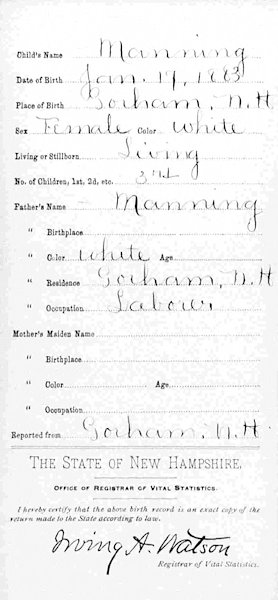 Child's Name Manning
Date of Birth Jan. 19, 1883
Place of Birth Gorham, N.H
Sex Female Color White
Living or Stillborn Living
No. of Children, 1st, 2d, etc. 3rd
Father's Name – Manning
" Birthplace
" Color White Age
" Residence Gorham, N.H
" Occupation Laborer
Mother's Maiden Name
" Birthplace
" Color Age
" Occupation
Reported from Gorham, N.H.
THE STATE OF NEW HAMPSHIRE.
OFFICE OF REGISTRAR OF VITAL STATISTICS.
I hereby certify that the above birth record is an exact copy of the
return made to the State according to law.
Irving A. Watson
Registrar of Vital Statistics.